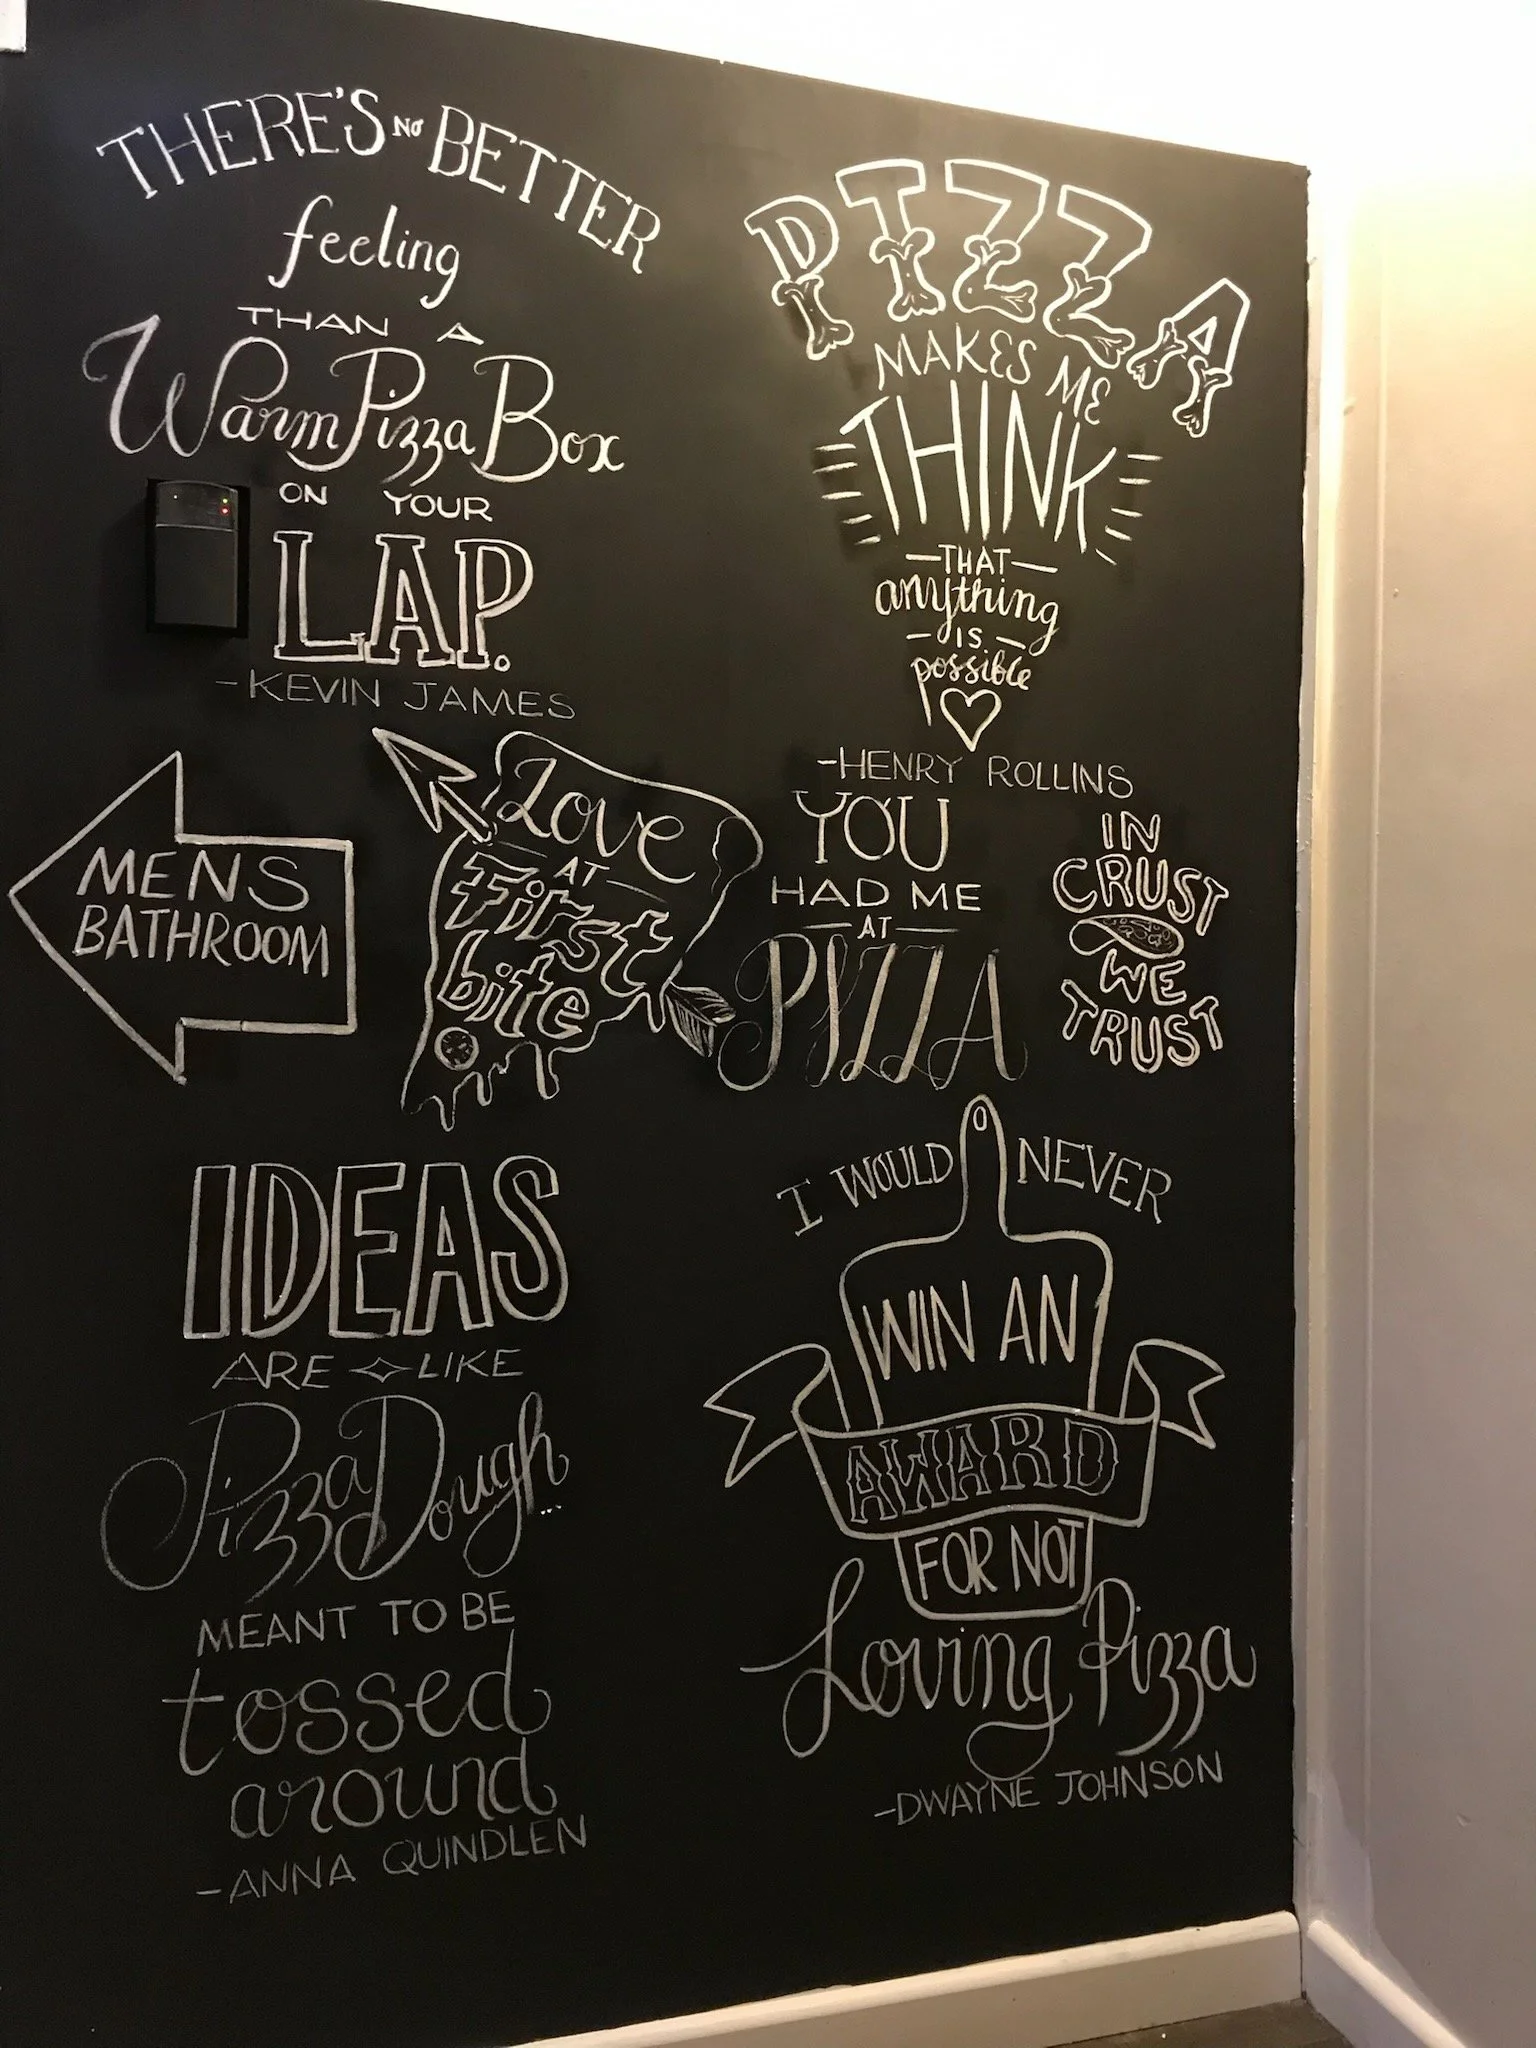 THERE'S No BETTER
feeling
THAN A
Warm Pizza Box
ON YOUR
LAP.
-KEVIN JAMES
PIZZA
MAKES ME
THINK
-THAT-
anything
-IS-
possible
-HENRY ROLLINS
MENS
BATHROOM
Love
-AT-
First
bite
YOU
HAD ME
-AT-
PIZZA
IN
CRUST
WE
TRUST
IDEAS
ARE LIKE
Pizza Dough...
MEANT TO BE
tossed
around
-ANNA QUINDLEN
I WOULD NEVER
WIN AN
AWARD
FOR NOT
Loving Pizza
-DWAYNE JOHNSON